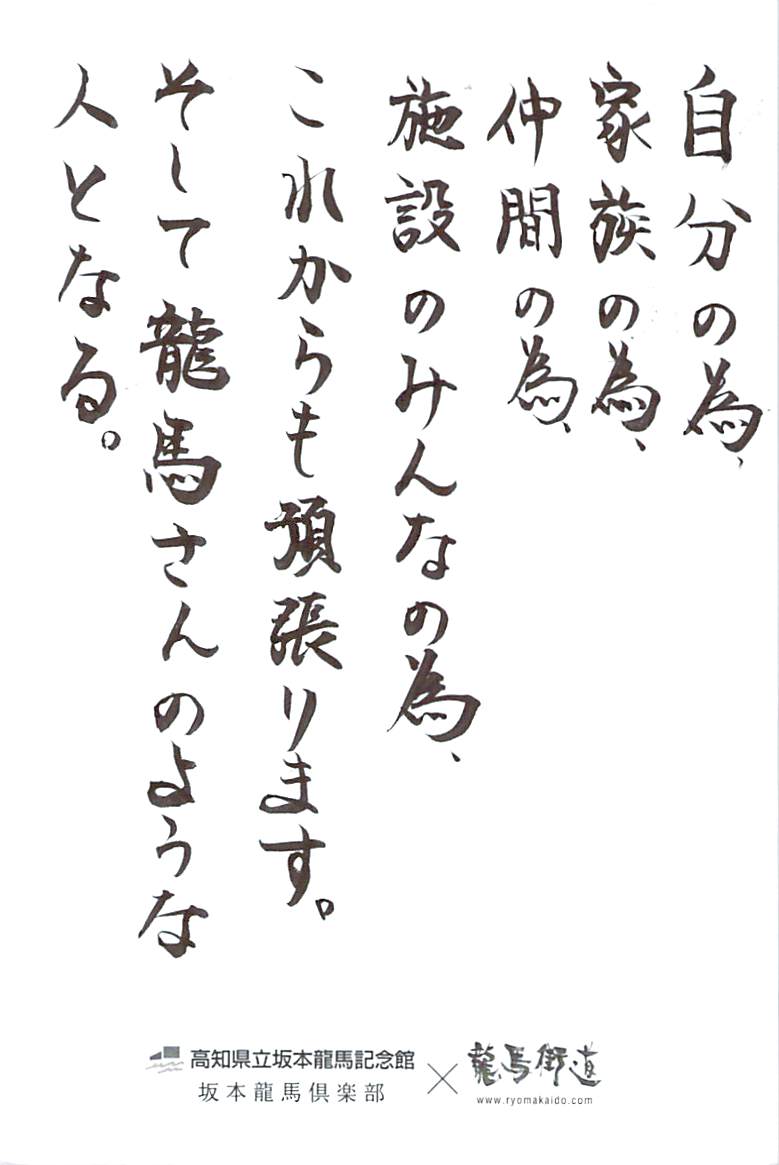 自分の為、
家族の為、
仲間の為、
施設のみんなの為、
これからも頑張ります。
そして龍馬さんのような
人となる。
高知県立坂本龍馬記念館
坂本龍馬倶楽部
×
龍馬街道
www.ryomakaido.com